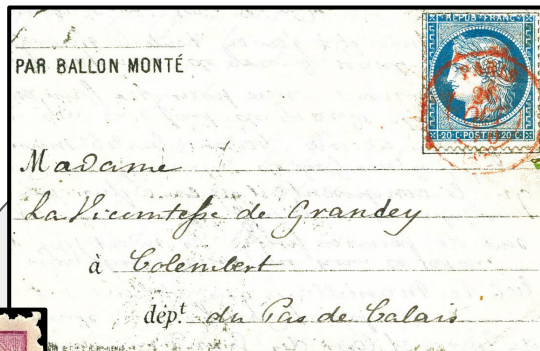 REPUB·FRANC
PAR BALLON MONTÉ
PARIS
20·C·POSTES·20·C
Madame
La Vicomtesse de Grandey
à Colembert
dépt du Pas de Calais